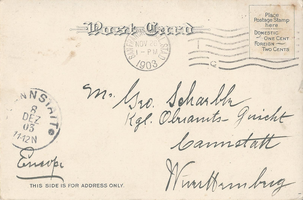 Post Card
Place
Postage Stamp
here
DOMESTIC
ONE CENT
FOREIGN
TWO CENTS
NOV
1903
8
DEZ
03
11-12N
Mr. Geo. Scharble
Kgl. Oberamts-Gericht
Cannstatt
Württemberg
Europe
THIS SIDE IS FOR ADDRESS ONLY.